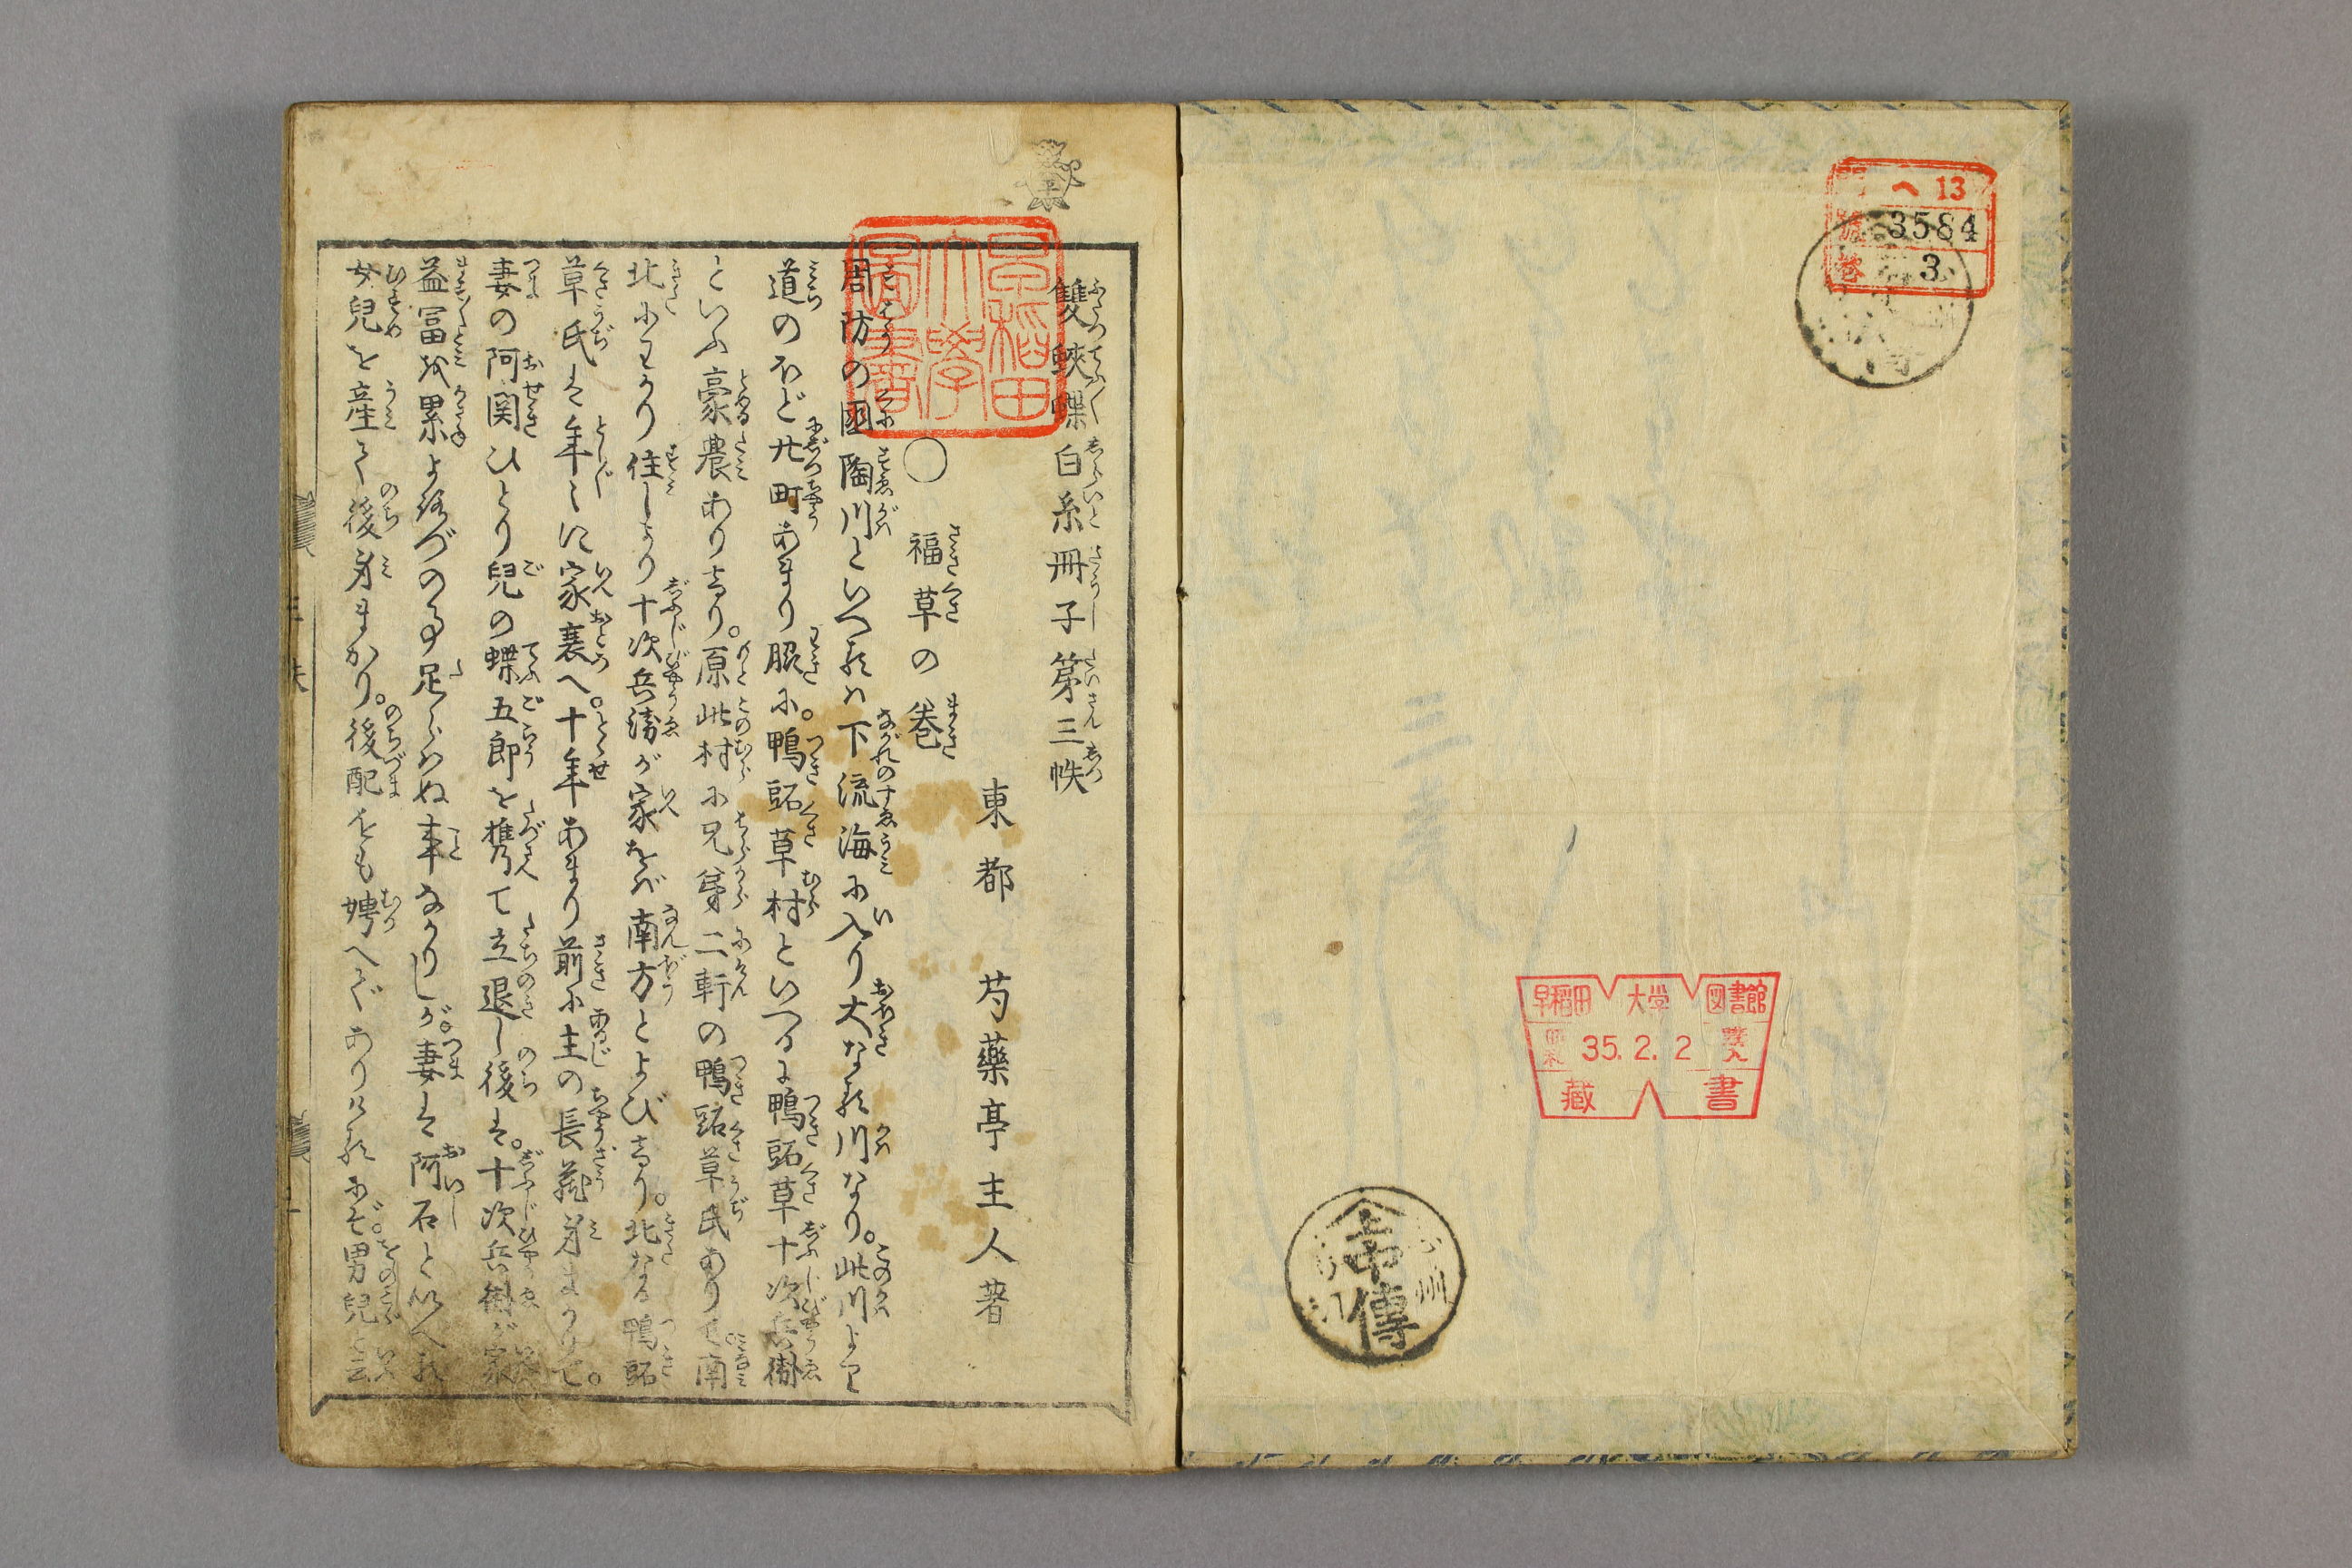 門 ヘ 13
號 3584
巻 3
早稲田 大学 図書館
昭和 35. 2. 2 購入
蔵 書
傳
州
早稲田
大學
圖書
雙蛺蝶白糸冊子第三帙
東都 芍藥亭主人著
○ 福草の巻
周防の國陶川といへるハ下流海に入り大なる川なり。此川より
道のほど廿町あまり脇に。鴨跖草村といへるに鴨跖草十次兵衛
といふ豪農あり and り。原此村に兄弟二軒の鴨跖草氏ありて。南
北にわかり住しより十次兵衛が家をバ南方とよびけり。北なる鴨跖
草氏は年々に家衰へ。十年あまり前に主の長蔵身まかりて。
妻の阿関ひとり兒の蝶五郎を携て立退し後は。十次兵衛が家
益冨を累よろづの事足らハぬ事なかりしが。妻は阿石といへる
女兒を産て後身まかり。後配をも娉へでありけるにぞ。男兒と云